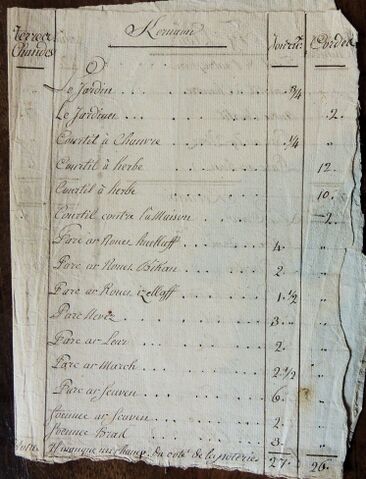 Terres Chaudes Kernaun Journx Cordes
Le Jardin ¾
Le Jardinau 2
Courtil à Chanvre ¼ "
Courtil à herbe 12
Courtil à herbe 10
Courtil contre la Maison 2
Parc ar Roues huellaff 4 "
Parc ar Roues Bihan 2 "
Parc ar Roues izellaff 1 ½ "
Parc Nevez 3 "
Parc ar Leur 2 "
Parc ar March 2 ½ "
Parc ar feuven 6 "
foennec ar feuven 2 "
foennec Bras 3 "
Il manque un champ du coté de la 27 26